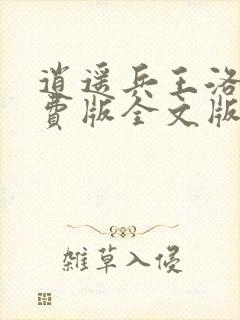 逍遥兵王洛
费版全文版
雑草入侵